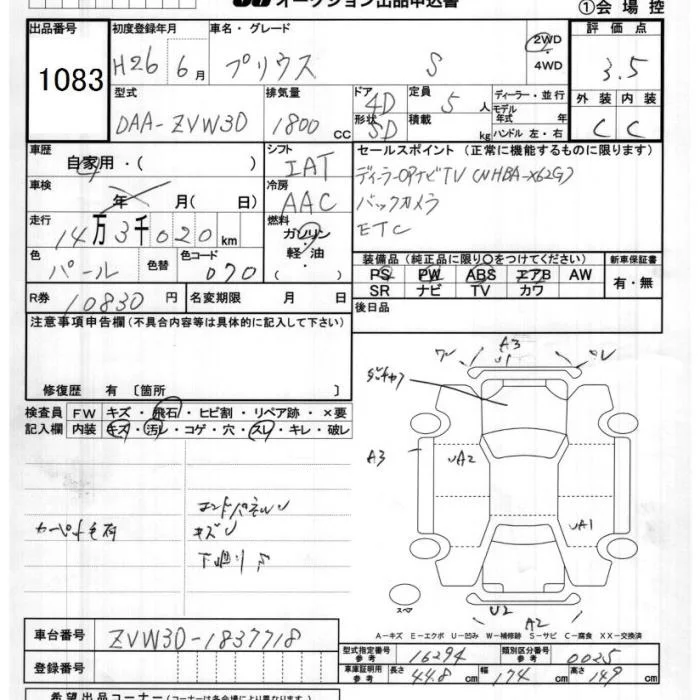 オークション出品申込書
①会場控
出品番号
1083
初度登録年月
H26 6月
車名・グレード
プリウス S
2WD
4WD
評価点
3.5
外装 内装
C C
型式
DAA-ZVW30
排気量
1800 CC
ドア
4D
形状
5D
定員
5人
積載
kg
ディーラー・並行
モデル年式 年
ハンドル 左・右
車歴
自家用・( )
シフト
IAT
車検
年 月( 日)
冷房
AAC
走行
14万3千020km
燃料
ガソリン・軽油
( )
色
パール
色替
色コード
070
R券
10830円
名変期限 月 日
セールスポイント (正常に機能するものに限ります)
ディーラーOPナビTV (NHBA-X62G)
バックカメラ
ETC
装備品 (純正品に限り○をつけてください)
新車保証書
PS PW ABS エアB AW
SR ナビ TV カワ
有・無
後日品
注意事項申告欄 (不具合内容等は具体的に記入して下さい)
修復歴 有 〔箇所 〕
検査員記入欄
FW キズ・飛石・ヒビ割・リペア跡・×要
内装 キズ・汚レ・コゲ・穴・スレ・キレ・破レ
カーペット毛荷
エンドパネルU
キズU
A3
U1
ワレ
A3
UA2
UA1
スペア
U2
A2
A-キズ E-エクボ U-凹み W-補修跡 S-サビ C-腐食 XX-交換済
車台番号
ZVW30-1837718
登録番号
型式指定番号 参考
16294
類別区分番号 参考
0025
車庫証明用 参考
長さ 448cm 幅 174cm 高さ 149cm
希望出品コーナー (コーナーは各会場により異なります)